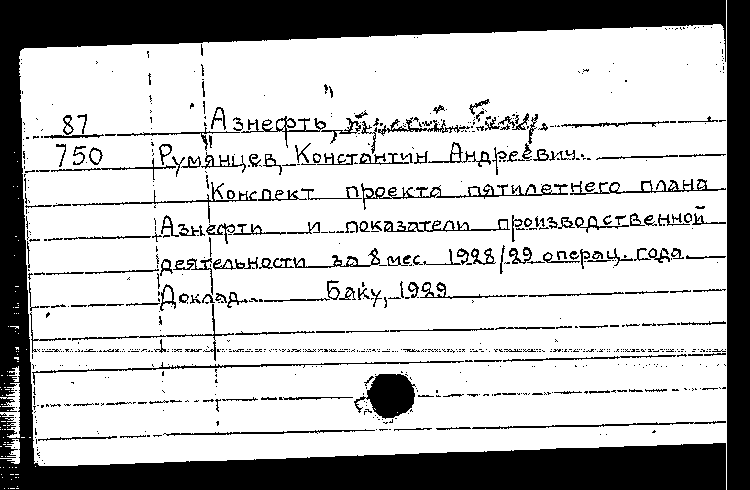 87 Азнефть", трест Баку.
750 Румянцев, Константин Андреевич.
Конспект проекта пятилетнего плана
Азнефти и показатели производственной
деятельности за 8 мес. 1928/29 операц. года.
Доклад... Баку, 1929